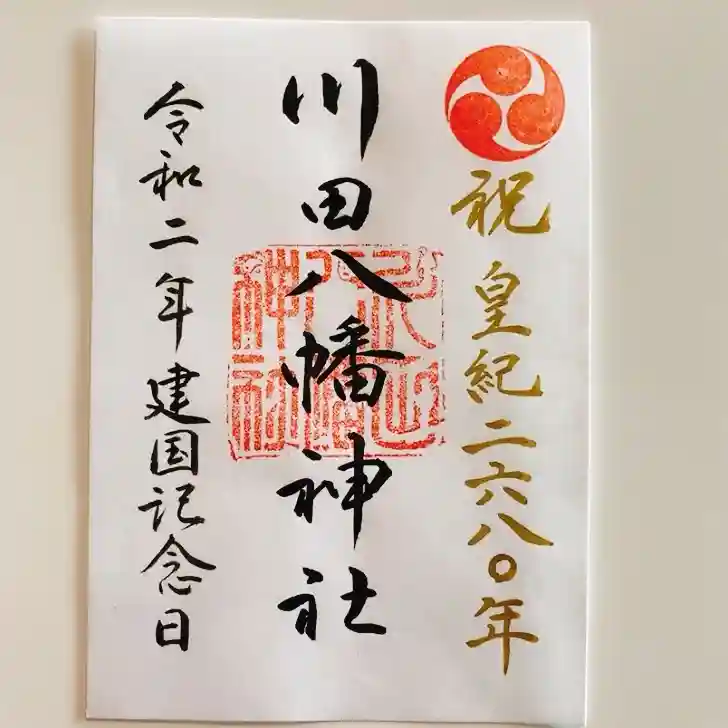 祝 皇紀二六八〇年
川田八幡神社
令和二年建国記念日